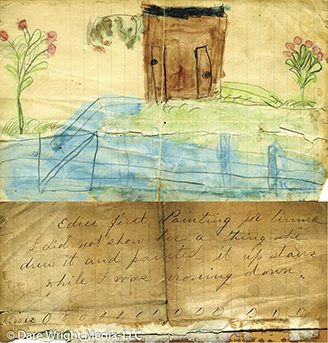 first Painting for
I did not show her a thing she
drew it and painted it up stairs
while I was ironing down.
© Dare Wright Media, LLC